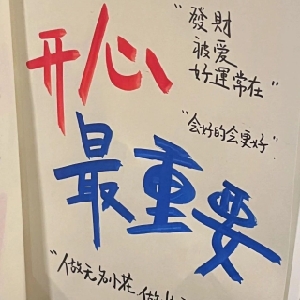 开心
"發財
被爱
好運常在"
"会好的会更好"
最重要
"做无名小花 做